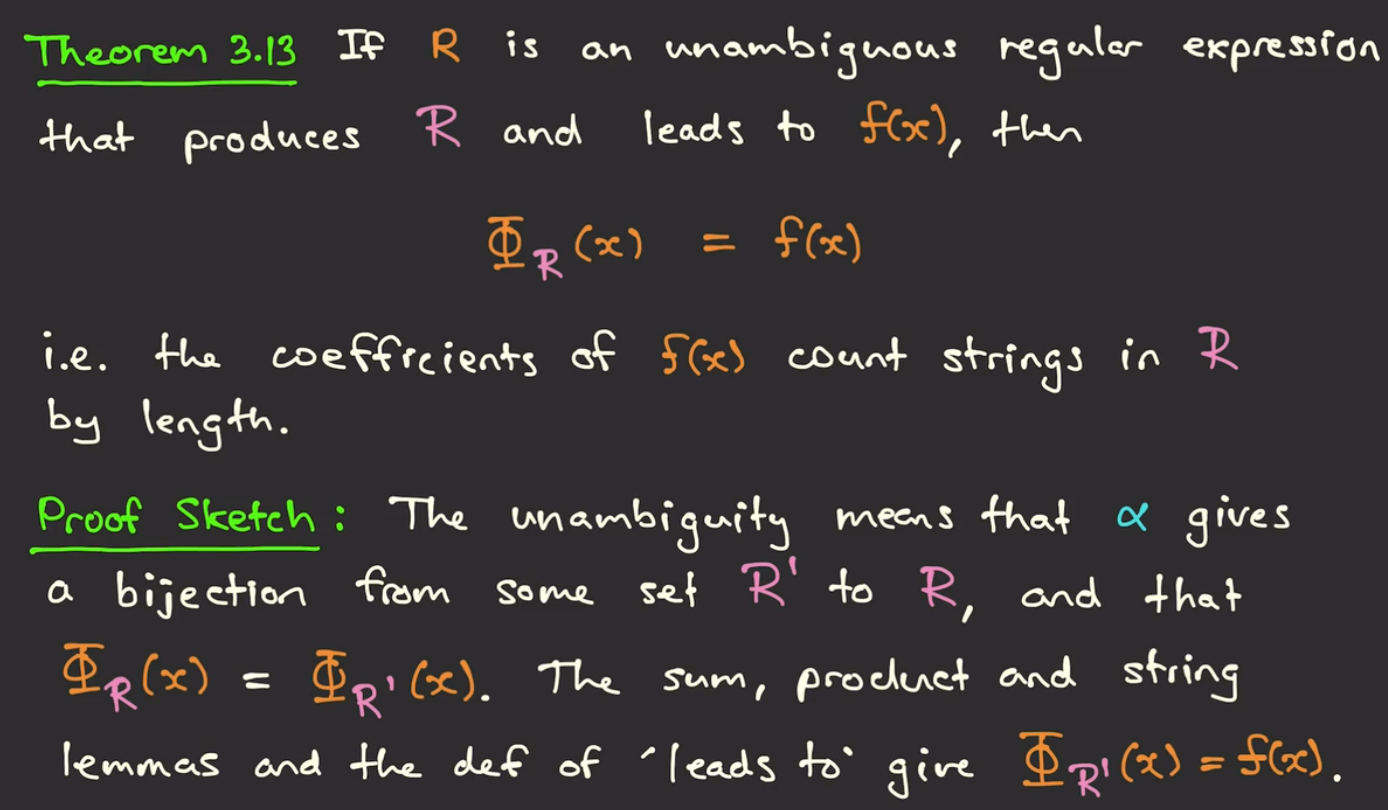 Theorem 3.13 If R is an unambiguous regular expression
that produces ℛ and leads to f(x), then
Φ_ℛ(x) = f(x)
i.e. the coefficients of f(x) count strings in ℛ
by length.
Proof Sketch: The unambiguity means that α gives
a bijection from some set ℛ' to ℛ, and that
Φ_ℛ(x) = Φ_ℛ'(x). The sum, product and string
lemmas and the def of 'leads to' give Φ_ℛ'(x) = f(x).